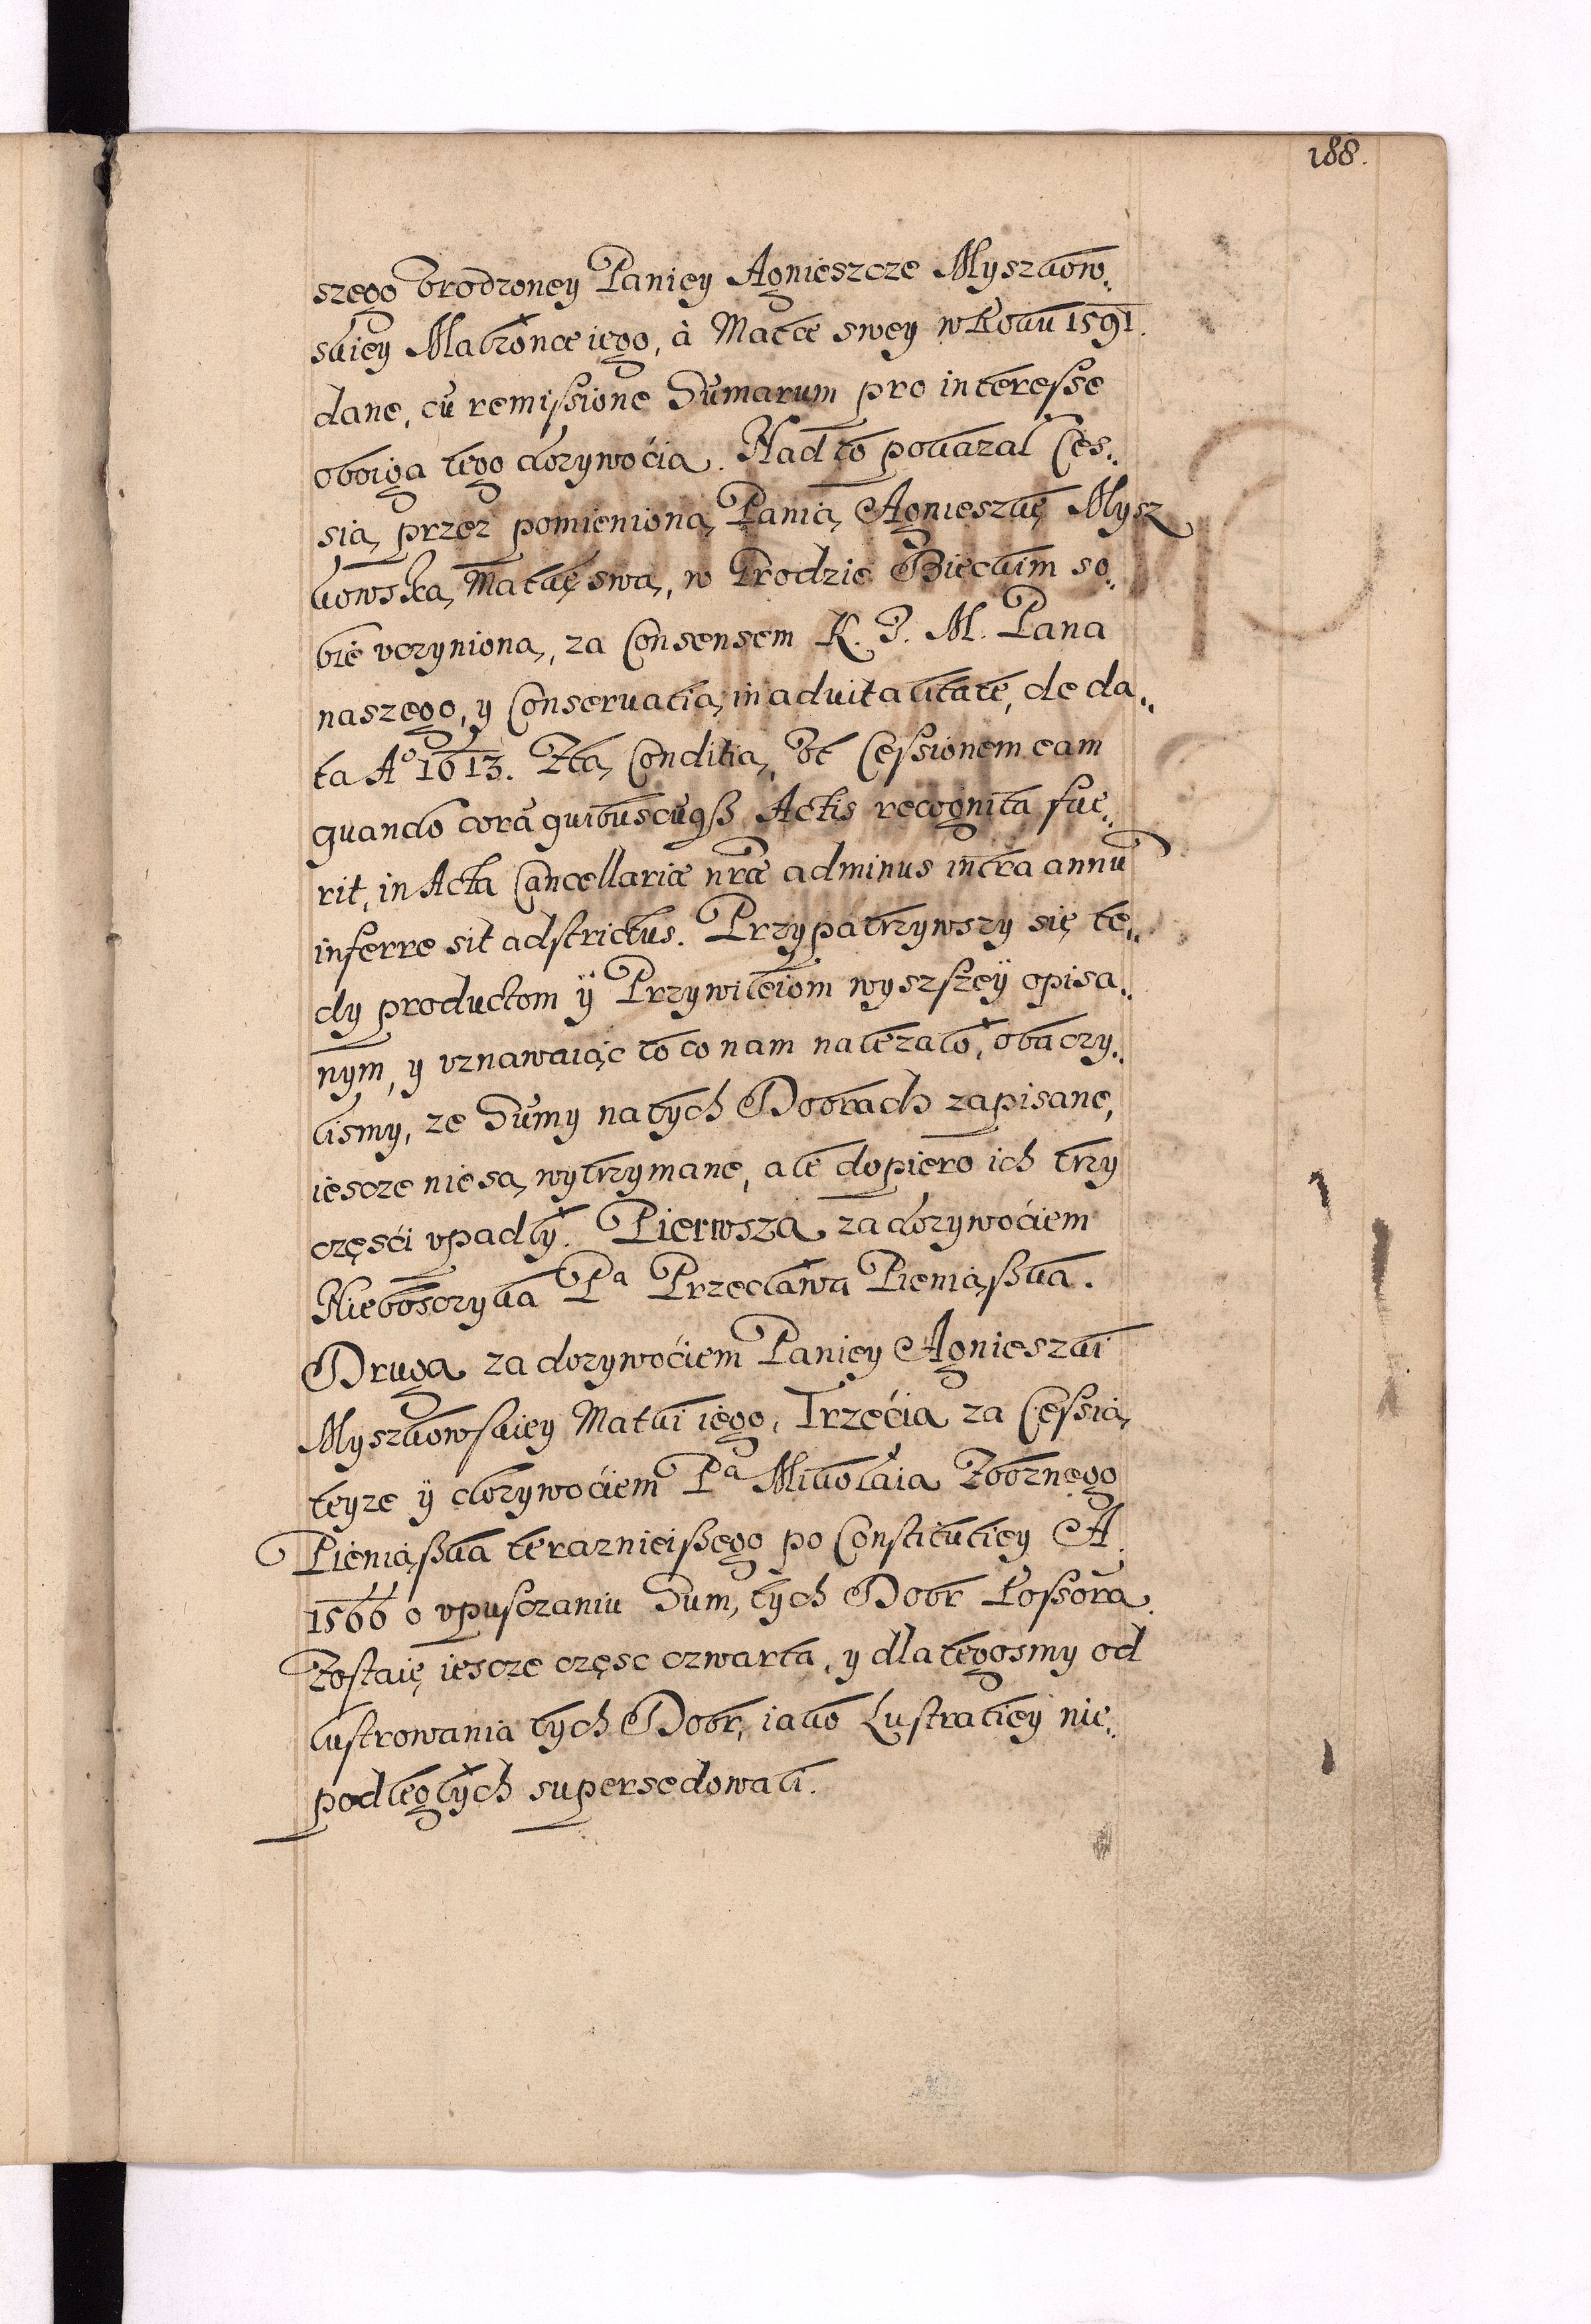 188.
szego Vrodzoney Paniey Agnieszce Myszkow„
skiey Małżonce iego, à Matce swey w Roku 1591.
dane, cũ remissione Sũmarum pro interesse
oboiga tego dozywocia. Nad to pokazał Ces„
sią, przez pomienioną Panią Agnieszkę Mysz
kowską Matkę swą, w Grodzie Bieckim so„
bie vczynioną, za Consensem K. J. M. Pana
naszego, y Conseruatią in aduitalitate, de da„
ta A° 1613. Ztą Conditią, Vt Cessionem eam
quando corã quibuscũqß Actis recognita fue„
rit, in Acta Cancellariæ nræ adminus intra annũ
inferre sit adstrictus. Przypatrzywszy się te„
dy productom ÿ Przywileiom wyszszeÿ opisa„
nym, y vznawaiąc to co nam należało, obaczy„
lismy, ze Sũmy na tych Dobrach zapisane,
iescze nie są wytrzymane, ale dopiero ich trzy
częsći vpadły. Pierwsza za dozywoćiem
Nieboszczyka Pa Przecława Pieniąßka.
Druga za dozywoćiem Paniey Agnieszki
Myszkowskiey Matki iego, Trzećia za Cessią
teyze ÿ dozywoćiem Pa Mikołaia Zboznego
Pieniąßka teraznieißego po Constitutiey A.
1566 o vpusczaniu Sum, tych Dobr Possora.
Zostaię iescze częsc czwarta, y dla tegosmy od
lustrowania tych Dobr, iako Lustratiey nie„
podległych supersedowali.